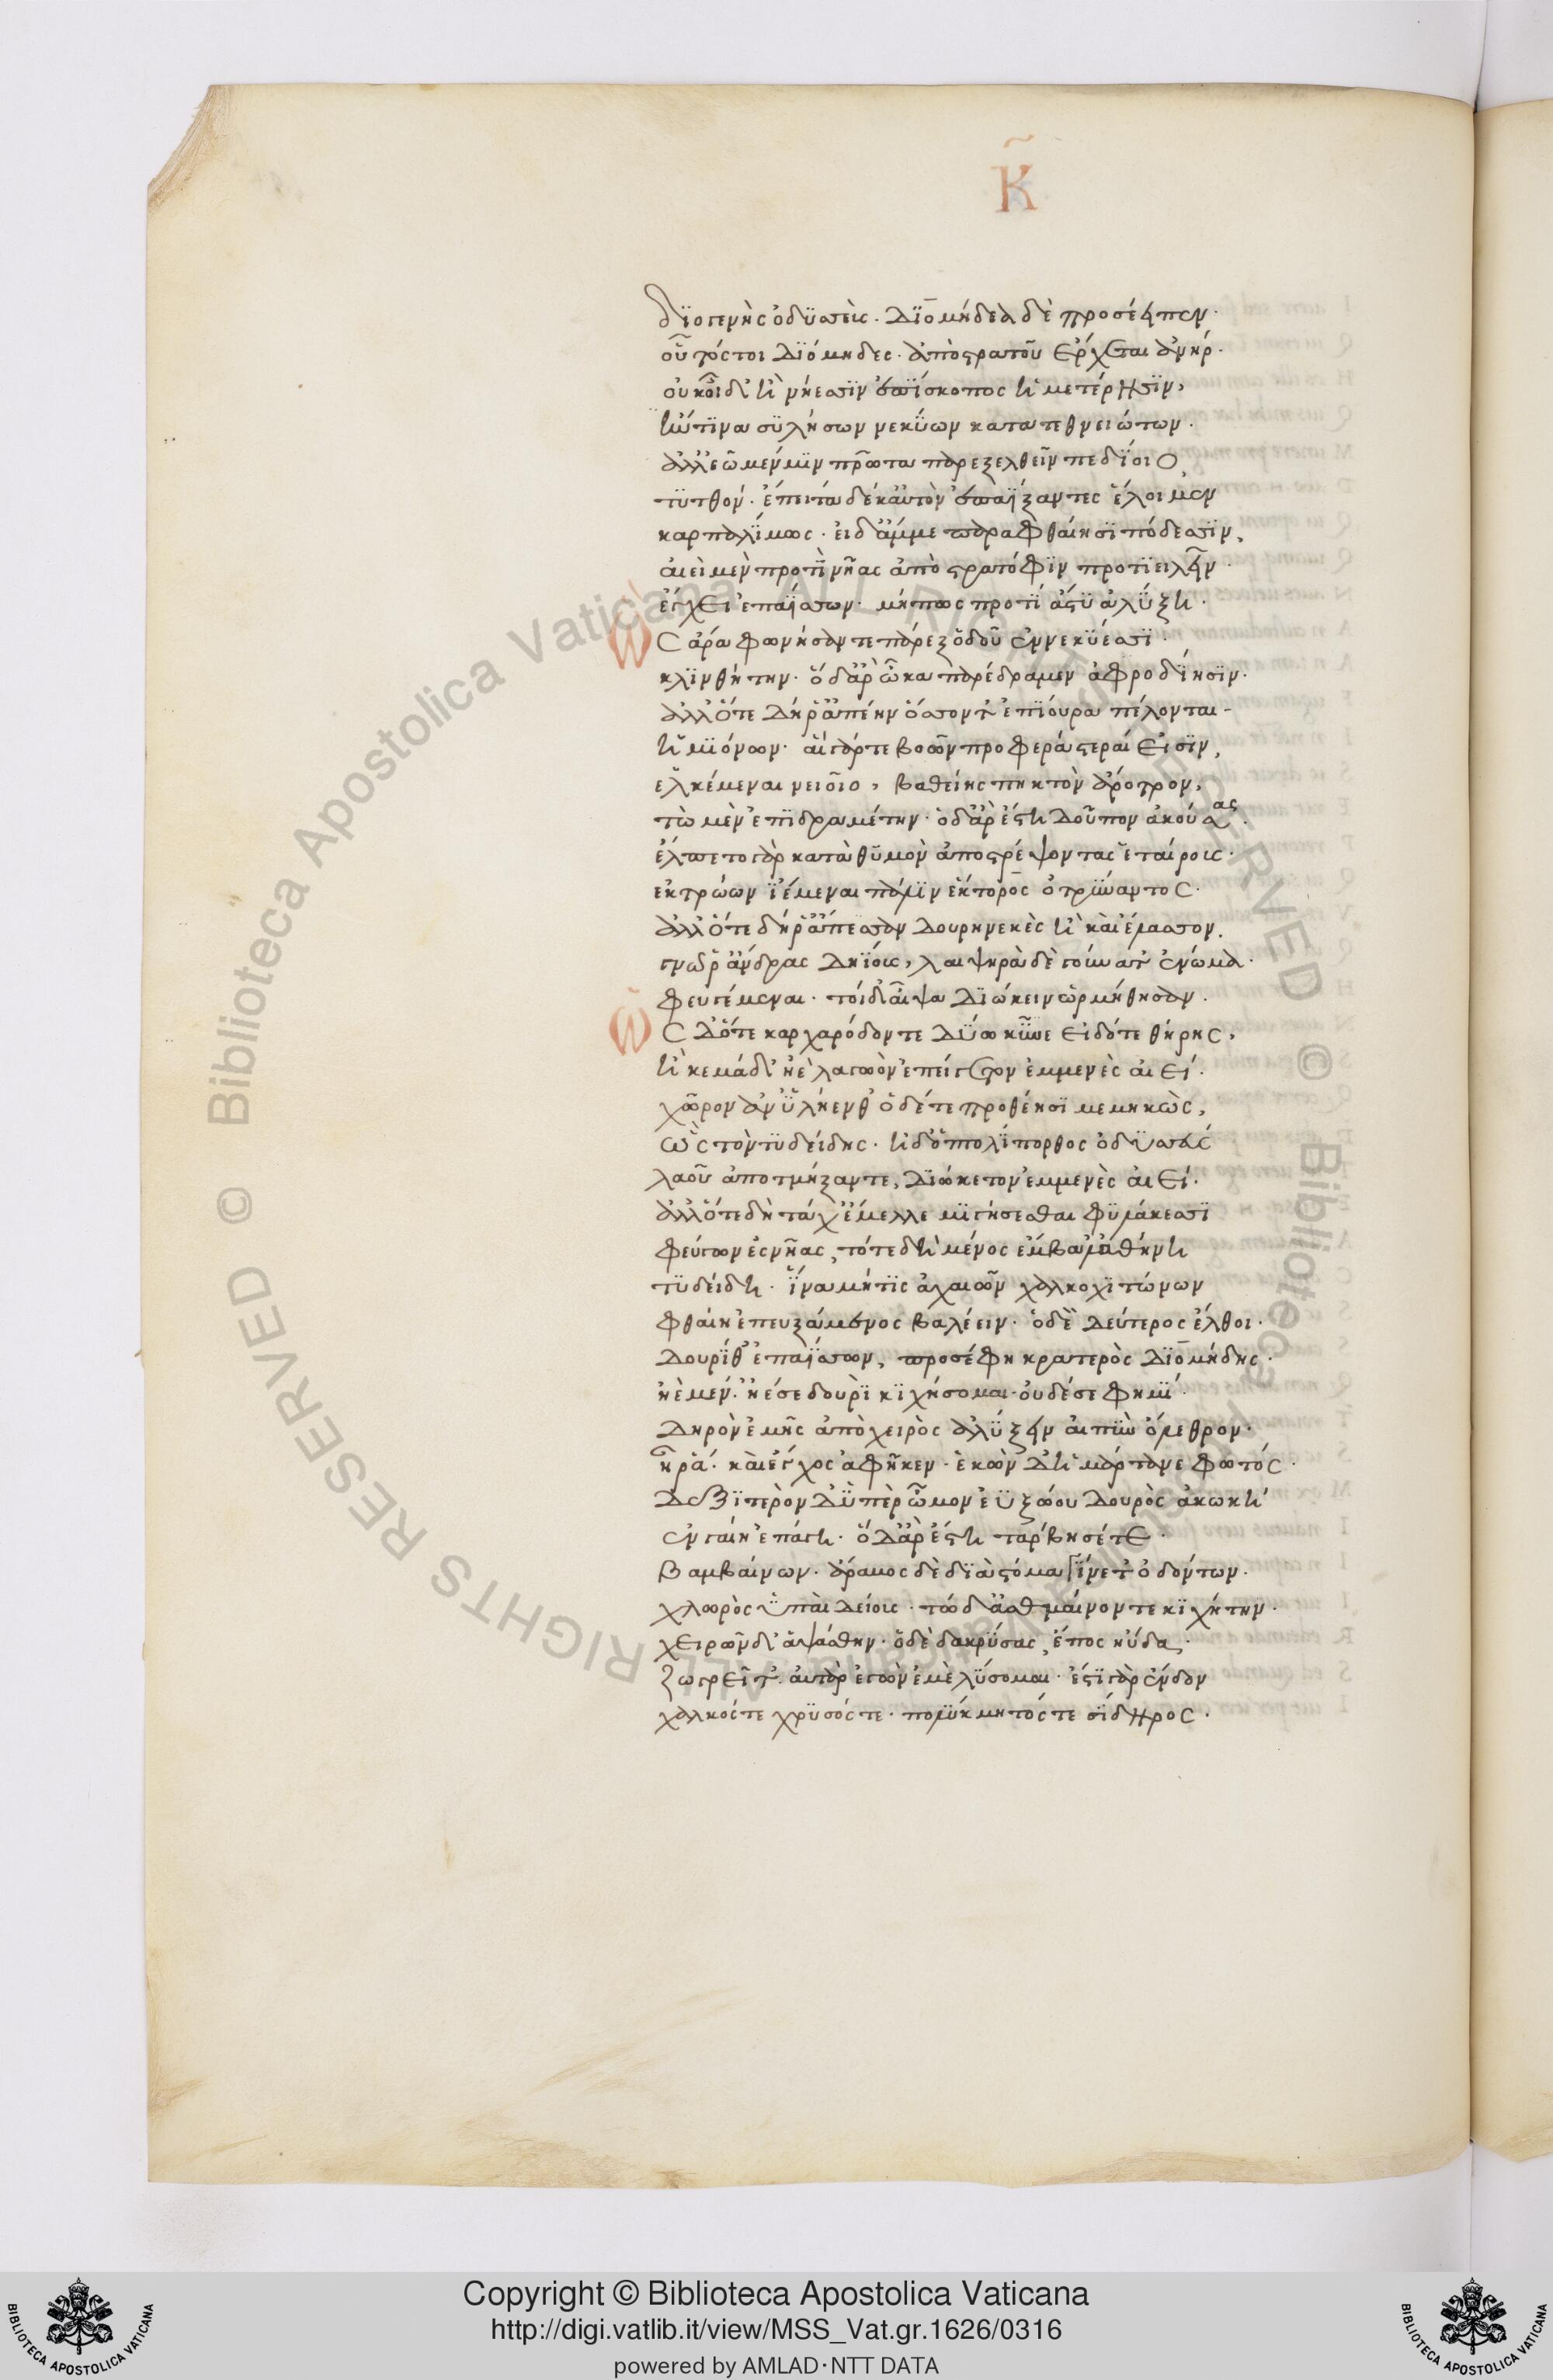 Κ̃
δϊογενὴς ὀδϋσεὺς. Διομήδεα δὲ προσέειπεν·
οὗτός τοι Διόμηδες· ἀπὸ στρατοῦ ἔρχεται ἀνήρ·
οὐκ οἶδ' ἢ νήεσσϊν ἐπΐσκοπος ἡμετέρησϊν,
ἤ τϊνα σϋλήσων νεκΰων κατατεθνειώτων·
ἀλλ' ἐῶμέν μϊν πρῶτα παρεξελθεῖν πεδΐοιο,
τϋτθόν· ἔπειτα δέ κ' αὐτὸν ἐπαΐξαντες ἕλοιμεν
καρπαλΐμως· εἰ δ' ἄμμε παραφθαίησϊ πόδεσσϊν,
αἰεὶ μὲν προτῒ νῆας ἀπὸ στρατόφϊν προτϊειλεῖν·
ἔγχει ἐπαΐσσων· μήπως προτΐ ἄστϋ ἀλΰξη·
Ὣς ἄρα φωνήσαντε παρὲξ ὁδοῦ ἐν νεκϋέσσϊ·
κλϊνθήτην· ὁ δ' ἄρ' ὦκα παρέδραμεν ἀφροδΐησϊν·
ἀλλ' ὅτε δή ῥ' ἀπέην ὅσσον τ' ἐπΐουρα πέλονται
ἡμϊόνων· αἱ γάρ τε βοῶν προφερέστεραί εἰσϊν,
ἑλκέμεναι νειοῖο, βαθείης πηκτὸν ἄροτρον,
τὼ μὲν ἐπϊδραμέτην· ὁ δ' ἄρ' ἔστη δοῦπον ἀκούσας·
ἔλπετο γὰρ κατὰ θϋμὸν ἀποστρέψοντας ἑταίρους·
ἐκ τρώων ϊέμεναι πάλϊν ἕκτορος ὀτρΰναντος·
ἀλλ' ὅτε δή ῥ' ἄπεσαν δουρηνεκὲς ἢ καὶ ἔλασσον.
γνῶ ῥ' ἄνδρας δηΐους, λαιψηρὰ δὲ γούνατ' ἐνώμα·
φευγέμεναι· τοὶ δ' αἶψα δϊώκειν ὡρμήθησαν·
Ὡς δ' ὅτε καρχαρόδοντε δΰω κΰνε εἰδότε θήρης,
ἢ κεμάδ' ἠὲ λαγωὸν ἐπείγετον ἐμμενὲς αἰεί·
χῶρον ἀν' ὑλήενθ' ὁ δέ τε προθέησϊ μεμηκὼς,
ὣς τὸν τϋδείδης· ἠδ' ὁ πτολΐπορθος ὀδϋσσεὺς
λαοῦ ἀποτμήξαντε, δϊώκετον ἐμμενὲς αἰεί·
ἀλλ' ὅτε δὴ τάχ' ἔμελλε μϊγήσεσθαι φϋλάκεσσϊ
φεύγων ἐς νῆας, τότε δὴ μένος ἔμβαλ' ἀθήνη
τϋδείδη· ἵνα μή τϊς ἀχαιῶν χαλκοχϊτώνων
φθαίη ἐπευξάμενος βαλέειν· ὁ δὲ δεύτερος ἔλθοι·
δουρῒ δ' ἐπαΐσσων, προσέφη κρατερὸς Διομήδης·
ἠὲ μέν· ἠέ σε δουρὶ κϊχήσομαι· οὐδέ σε φημΐ·
δηρὸν ἐμῆς ἀπὸ χειρὸς ἀλΰξειν αἰπὺν ὄλεθρον·
ἦ ῥα· καὶ ἔγχος ἀφῆκεν· ἑκὼν δ' ἡμάρτανε φωτός·
δεξϊτερὸν δ' ὑπὲρ ὦμον ἐϋξόου δουρὸς ἀκωκὴ
ἐν γαίη ἐπάγη· ὁ δ' ἄρ' ἔστη τάρβησέ τε·
βαμβαίνων· ἄραβος δὲ δϊὰ στόμα γΐνετ' ὀδόντων·
χλωρὸς ὑπαὶ δείους· τὼ δ' ἀσθμαίνοντε κϊχήτην·
χειρῶν δ' ἁψάσθην· ὁ δὲ δακρΰσας, ἔπος ηὔδα·
ζωγρεῖτ'· αὐτὰρ ἐγὼν ἐμὲ λΰσομαι· ἔστϊ γὰρ ἔνδον
χαλκός τε χρϋσός τε· πολΰκμητός τε σΐδηρος·
Copyright © Biblioteca Apostolica Vaticana
http://digi.vatlib.it/view/MSS_Vat.gr.1626/0316
powered by AMLAD·NTT DATA